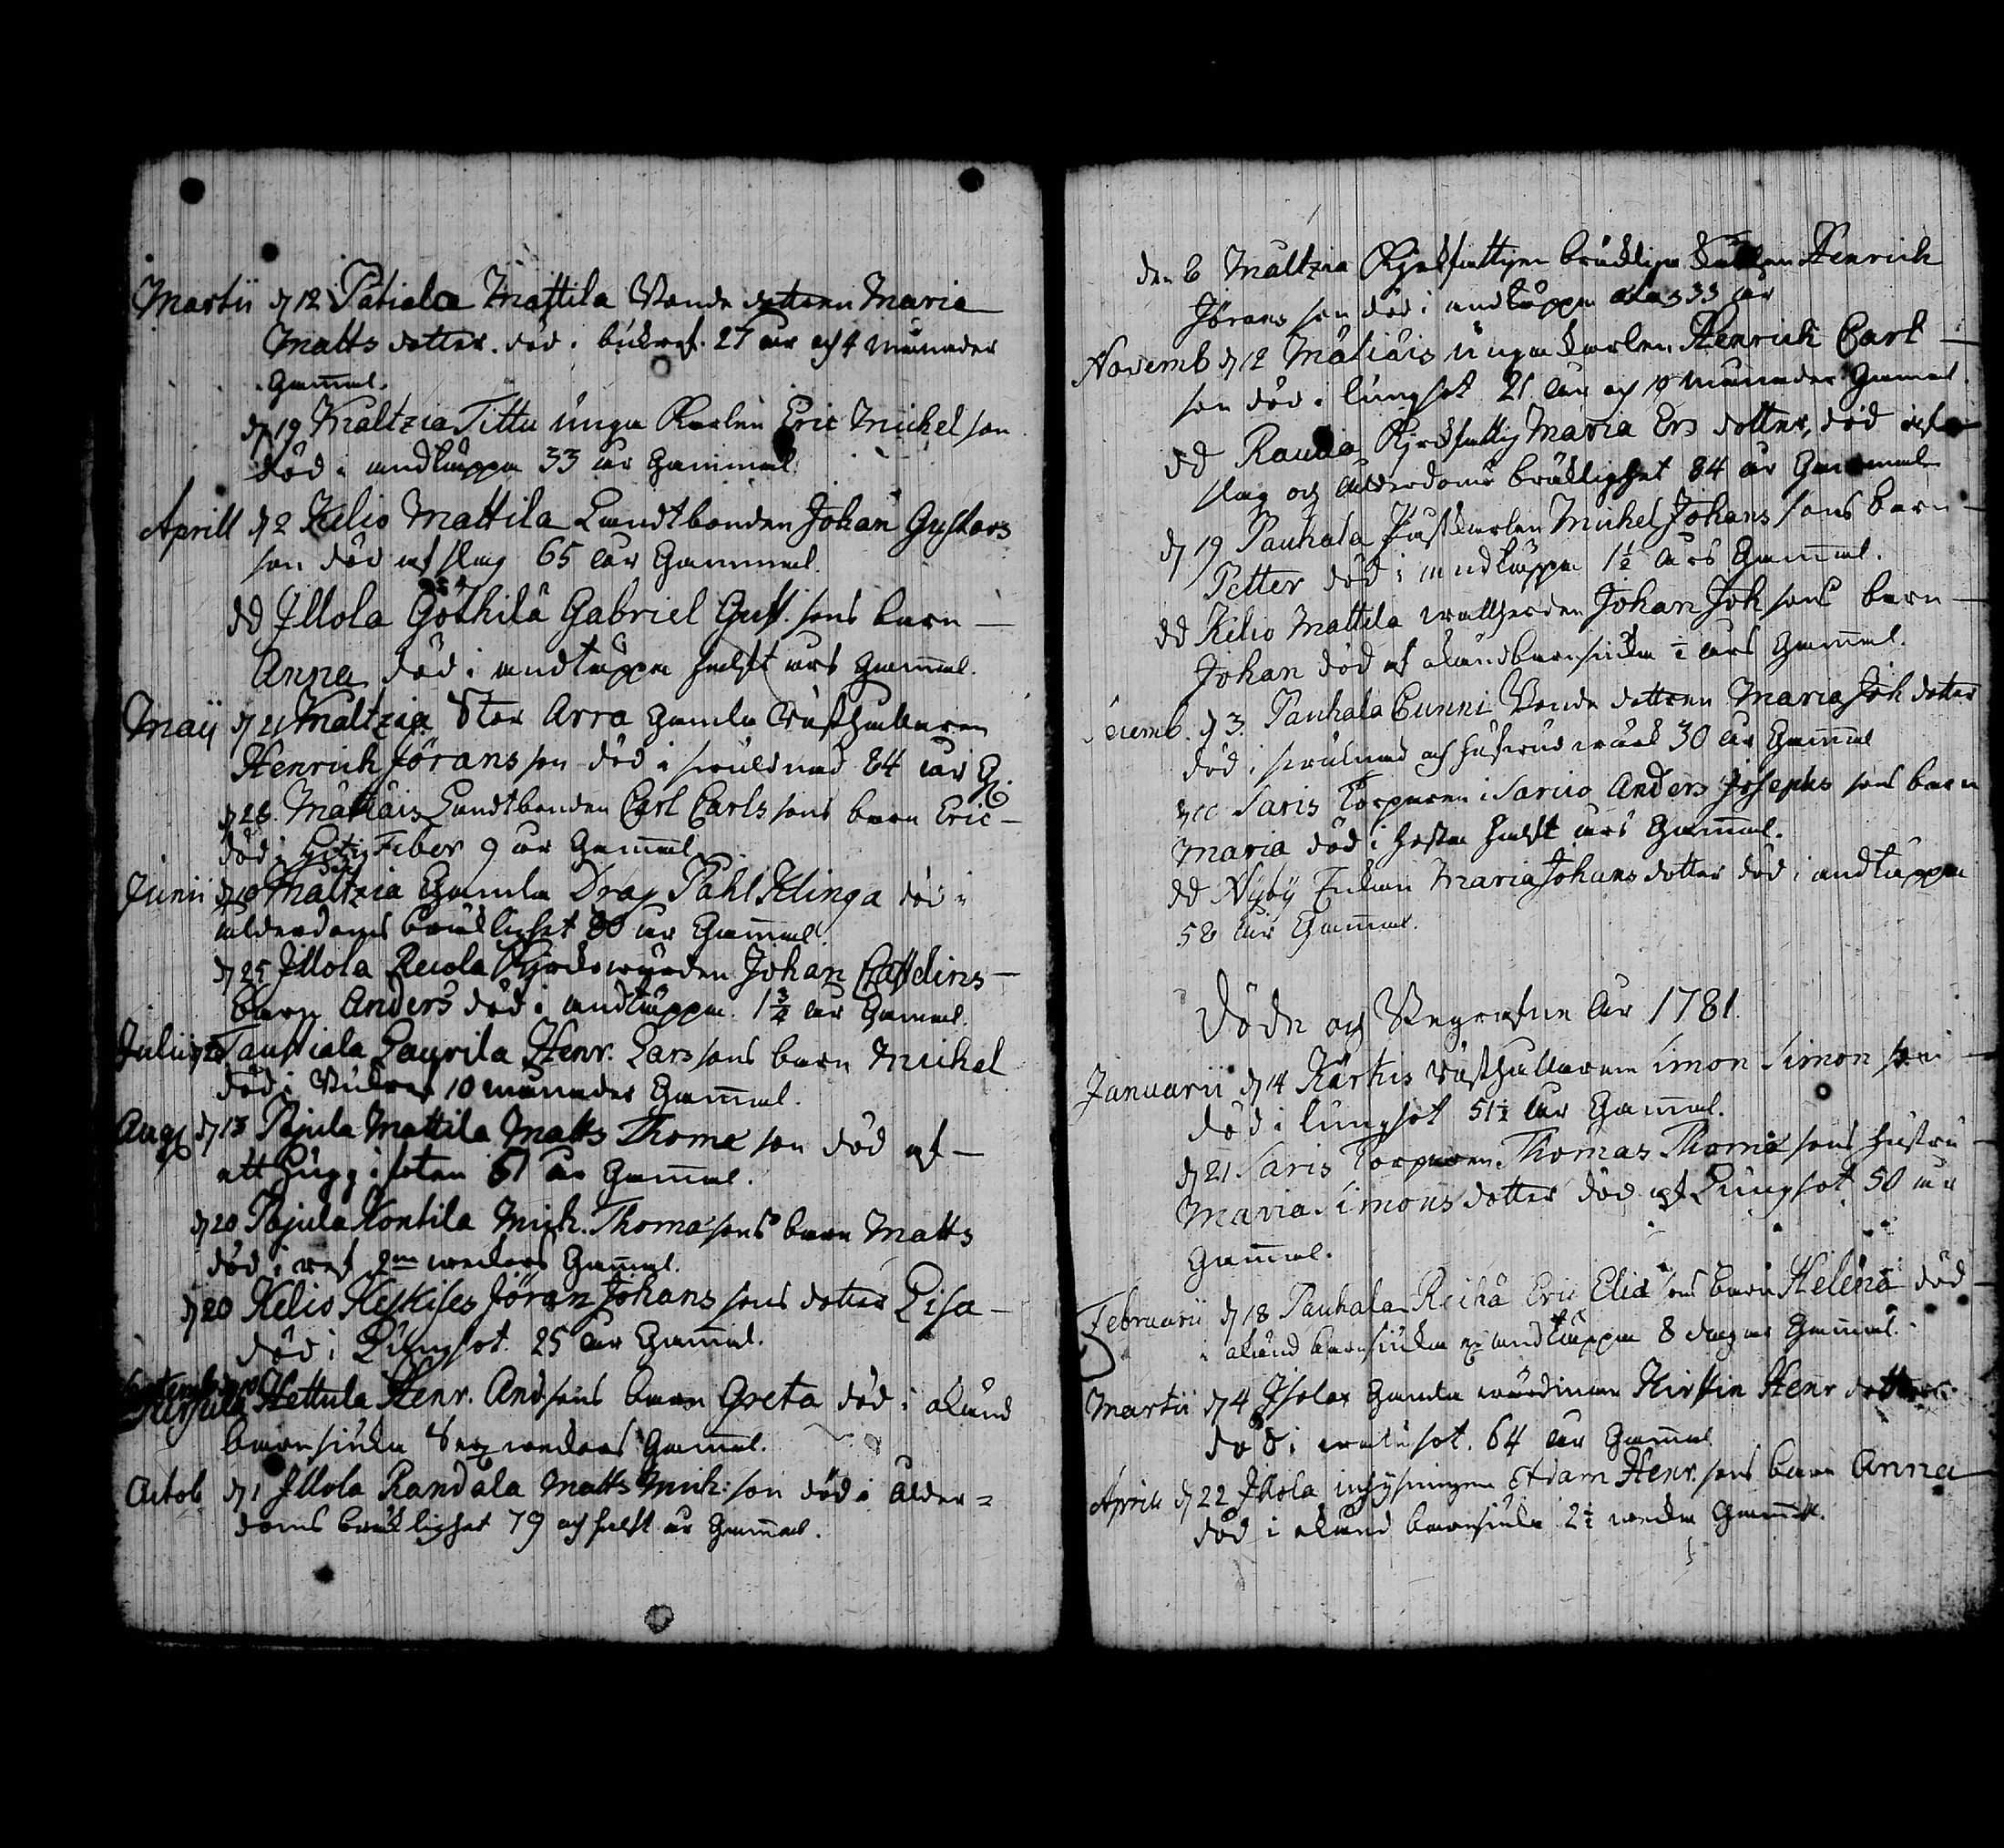 Martii d 12 Patiala Mattila Bonde dottren Maria
Matts dotter. död i bukref. 27 år och 4 månader
Gammal.
d 19 Maltzia Tittu unga Karlen Eric Michel son
död i andtäppa 33 år Gammal.
Aprill d 2 Kelio Mattila Landtbonden Johan Gustavs
son död af slag 65 år Gammal.
dd Illola Göthilä Gabriel Gust. sons barn
Anna död i andtäppa helft års Gammal.
Maij d 21 Maltzia Stor Arra Gamla Rusthållaren
Henrich Jörans son död i 84 år G.
d 26. Mäkiäis Landtbonden Carl Carls sons barn Eric
död i Feber 9 år Gammal
Junii d 10 Maltzia Gamla Drag. Påhl Klinga död i
ålderdoms bräcklighet 80 år Gammal.
d 25 Illola Recola Kyrckowärden Johan
barn Anders död i andtäppa. 1 3/4 år Gammal.
Julii Taustiala Laurila Henr. Lars sons barn Michel
död i Bukref 10 månader Gammal.
Aug d 13 Pajula Mattila Matts Thomæ son död af
ett hugg i foten 61 år Gammal.
d 20 Pajula Kontila Mich. Thomæ sons barn Matts
död i ref 2 weckors Gammal.
d 20 Kelio Heskises Jöran Johans sons dotter Lisa
död i Lungsot. 25 år Gammal.
Hettula Henr. And. sons barn Greta död i okänd
barnsiuka Sex weckors Gammal.
Octob d 1 Illola Randala Matts Mich: son död i ålder=
doms bräcklighet 79 och helft år Gammal.
den 6 Maltzia Kyrckfattigen bräcklige Henrich
Jörans son död i andtäppa 33 år
Novemb d 12 Mäkiäis unga karlen Henrich Carl
son död i lungsot 21 år och 10 månader Gammal.
dd Rauda Kyrckfattig Maria Ers dotter, död af
slag och ålderdoms bräcklighet 84 år Gammal
d 19 Pauhala Michel Johans sons barn
Petter död i andtäppa 1 1/2 års Gammal.
dd Kelio Mattila Johan Joh sons barn
Johan död af okänd barnsiuka 1/2 års Gammal.
d 3. Pauhala Cunni Bonde dottren Maria Joh dotter
död i och hufwud wärk 30 år Gammal
Saris Torparen i Sario Anders Josephs sons barn
Maria död i hosta helft års Gammal.
dd Nyby Enkan Maria Johans dotter död i andtäppa
58 år Gammal.
Döde och Begrafne år 1781.
Januarii d 14 Kärkis Rusthållaren Simon Simon son
död i lungsot 51 1/2 år Gammal.
d 21 Saris Torparen Thomas Thomæ sons hustru
Maria Simons dotter död af Lungsot 50 år
Gammal.
Februarii d 18 Pauhala Reihä Eric Eliæ sons barn Helena död
i okänd barnsiuka och andtäppa 8 dagar Gammal.
Martii d 4 Gamla wärdinna Kirstin Henr dotter
död i 64 år Gammal
Aprill d 22 Illola inhysingen Adam Henr. sons barn Anna
död i okänd barnsiuka 2 1/2 wecka Gammal.